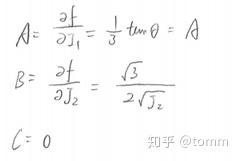 A = ∂f/∂J₁ = 1/3 tanθ = A
B = ∂f/∂J₂ = √3/2√J₂
C = 0
知乎 @tomm